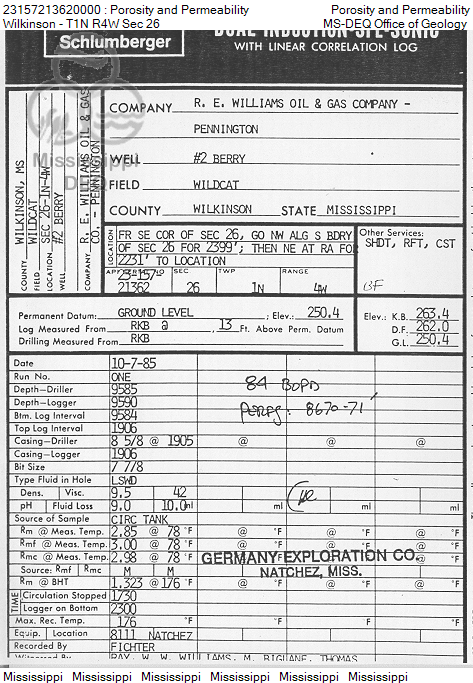 23157213620000 : Porosity and Permeability Porosity and Permeability
Wilkinson - T1N R4W Sec 26 MS-DEQ Office of Geology
Schlumberger
DUAL INDUCTION-SFL-SONIC
WITH LINEAR CORRELATION LOG
COUNTY WILKINSON, MS
FIELD WILDCAT
LOCATION SEC 26-1N-4W
WELL #2 BERRY
COMPANY R. E. WILLIAMS OIL & GAS
CO. - PENNINGTON
Mississippi
DEQ
COMPANY R. E. WILLIAMS OIL & GAS COMPANY -
PENNINGTON
WELL #2 BERRY
FIELD WILDCAT
COUNTY WILKINSON STATE MISSISSIPPI
LOCATION
FR SE COR OF SEC 26, GO NW ALG S BDRY
OF SEC 26 FOR 2399'; THEN NE AT RA FOR
2231' TO LOCATION
Other Services:
SHDT, RFT, CST
API SERIAL NO SEC TWP RANGE
23-157-
21362 26 1N 4W
BF
Permanent Datum: GROUND LEVEL ; Elev.: 250.4
Log Measured From RKB @ , 13 Ft. Above Perm. Datum
Drilling Measured From RKB
Elev.: K.B. 263.4
D.F. 262.0
G.L. 250.4
Date 10-7-85
Run No. ONE
Depth-Driller 9585
Depth-Logger 9590
Btm. Log Interval 9584
Top Log Interval 1906
Casing-Driller 8 5/8 @ 1905 @ @ @
Casing-Logger 1906
Bit Size 7 7/8
84 BOPD
Perfs: 8670-71'
Type Fluid in Hole LSWD
Dens. Visc. 9.5 42
pH Fluid Loss 9.0 10.0 ml ml ml ml
Source of Sample CIRC TANK
Rm @ Meas. Temp. 2.85 @ 78 °F @ °F @ °F @ °F
Rmf @ Meas. Temp. 3.00 @ 78 °F @ °F @ °F @ °F
Rmc @ Meas. Temp. 2.98 @ 78 °F @ °F @ °F @ °F
GERMANY EXPLORATION CO.
NATCHEZ, MISS.
Source: Rmf Rmc M M
Rm @ BHT 1.323 @ 176 °F @ °F @ °F @ °F
TIME
Circulation Stopped 1730
Logger on Bottom 2300
Max. Rec. Temp. 176 °F °F °F °F
Equip. Location 8111 NATCHEZ
Recorded By FICHTER
Witnessed By RAY, W. W. WILLIAMS, M. BIGLANE, THOMAS
Mississippi Mississippi Mississippi Mississippi Mississippi Mississippi